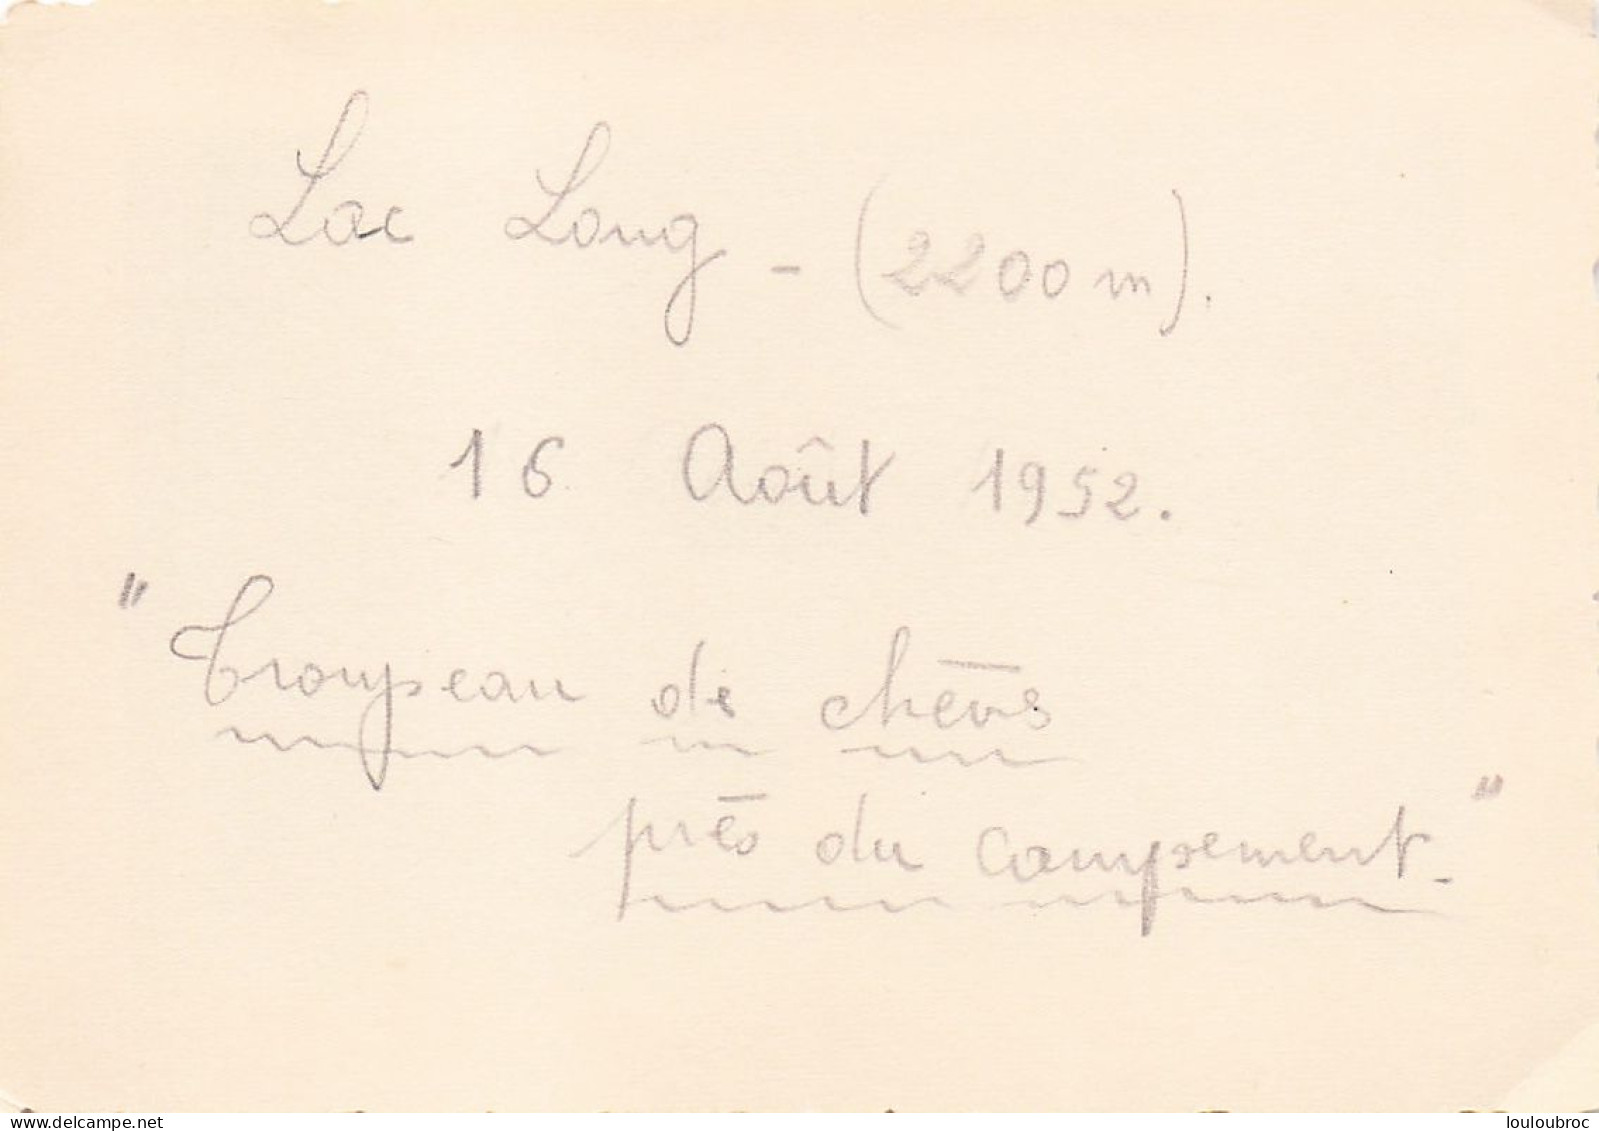 Lac Long - (2200 m).
16 Août 1952.
"Troupeau de
près du campement."
delcampe.net
louloubroc